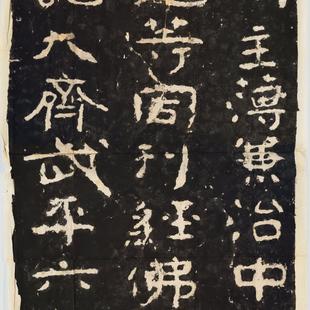 主薄兼治中
等同刊經佛
大齊武平六